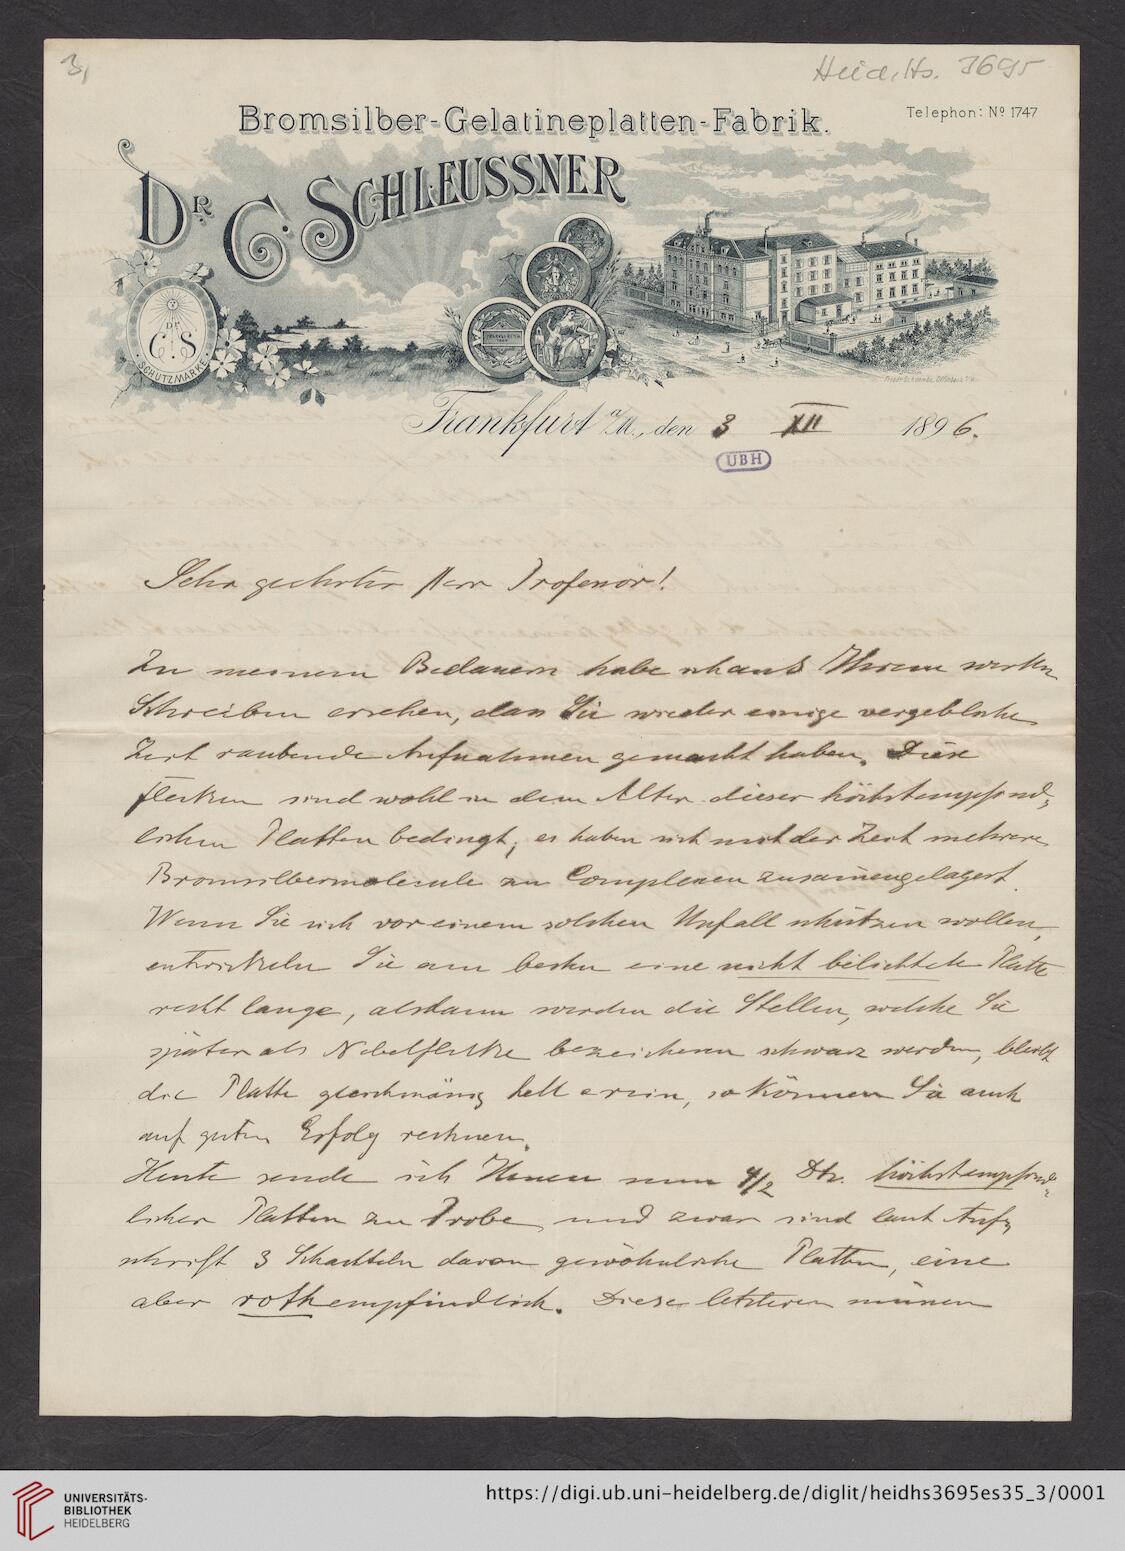 3,
Heid. Hs. 3695
Bromsilber-Gelatineplatten-Fabrik.
Telephon: Nº 1747
DR. C. SCHLEUSSNER
DR.
C. S.
SCHUTZMARKE
Frankfurt a/M., den 3 XII 1896.
UBH
Sehr geehrter Herr Professor!
Zu meinem Bedauern habe ich aus Ihrem werthen
Schreiben ersehen, dass Sie wieder einige vergebliche
Zeit raubende Aufnahmen gemacht haben. Diese
Flecken sind wohl in dem Alter dieser höchstempfind-
lichen Platten bedingt; es haben sich mit der Zeit mehrere
Bromsilbermolecule zu Complexen zusamengelagert.
Wenn Sie sich vor einem solchen Unfall schützen wollen,
entwickeln Sie am besten eine nicht belichtete Platte
recht lange, alsdann werden die Stellen, welche Sie
später als Nebelflecke bezeichnen schwarz werden, bleibt
die Platte gleichmässig hell & rein, so können Sie auch
auf guten Erfolg rechnen.
Heute sende ich Ihnen nun 4/2 Dtz. höchstempfind-
licher Platten zur Probe, und zwar sind laut Auf-
schrift 3 Schachteln davon gewöhnliche Platten, eine
aber rothempfindlich. Diese letzteren müssen
UNIVERSITÄTS-
BIBLIOTHEK
HEIDELBERG
https://digi.ub.uni-heidelberg.de/diglit/heidhs3695es35_3/0001